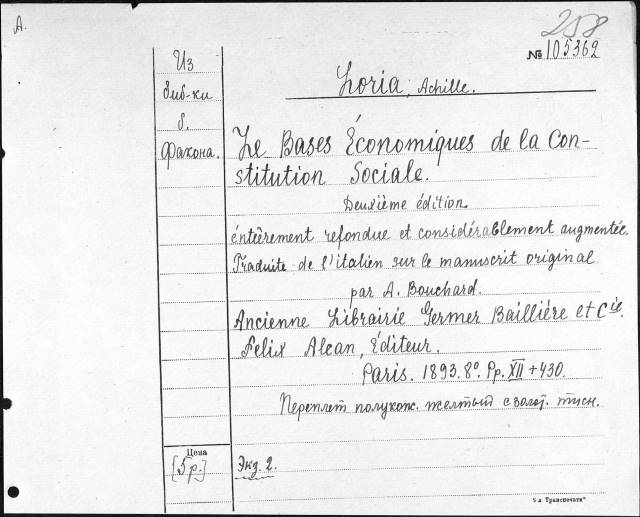 A.
258
№ 105362
Из
биб-ки
б.
Факона.
Loria, Achille.
Le Bases Économiques de la Con-
stitution Sociale.
Deuxième édition
éntièrement refondue et considérablement augmentée.
Traduite de l'italien sur le manuscrit original
par A. Bouchard.
Ancienne Librairie Germer Baillière et Cie.
Felix Alcan, Éditeur.
Paris. 1893. 8º. Pp. XII + 430.
Переплет полукож. желтый с золот. тисн.
Цена
[5 р.]
Экз. 2.
9-я Транспечати"